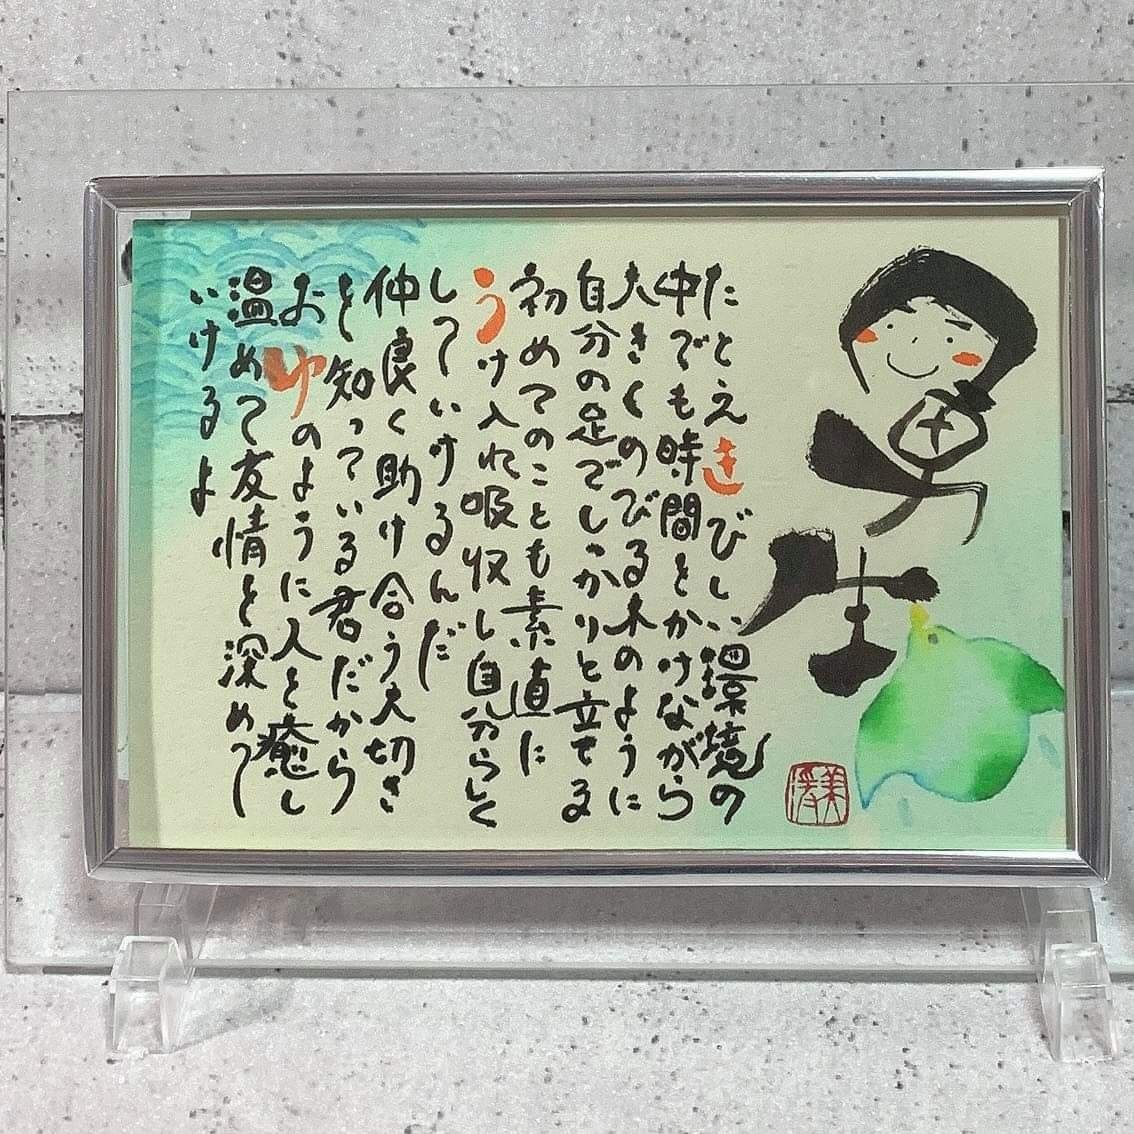 たとえきびしい環境の
中でも時間をかけながら
大きくのびる木のように
自分の足でしっかりと立てる
初めてのことも素直に
うけ入れ吸収し自分らしく
していけるんだ
仲良く助け合う大切さ
を知っている君だから
おゆのように人を癒し
温めて友情を深めて
いけるよ